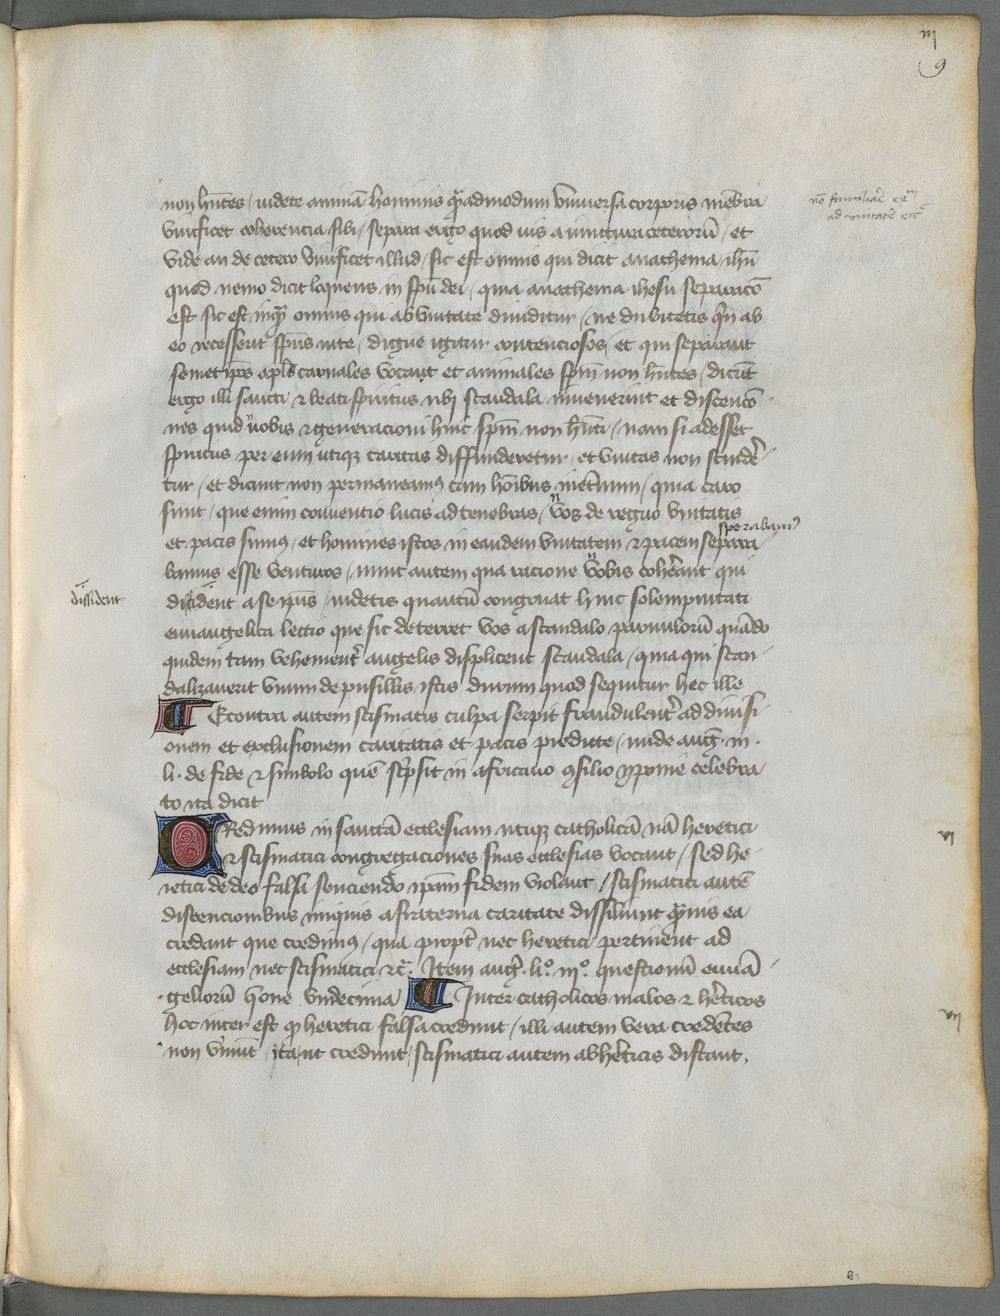 iij
9
non hn̄tes / uidete animā hominis q̄admodum vniuersa corporis mēbra
viuificet coherencia sibi / separa ergo quod uis a iunctura ceterorū / et
vide an de cetero viuificet illud / sic est omnis qui dicit anathema ihū
quod nemo dicit loquens in spū dei / quia anathema ihesu separacō
est sic est inq̄ omnis qui ab vnitate diuiditur / ne dubitetis q̄n ab
eo recesserit sps̄ uite / digne igitur contenciosos et qui separant
semet ip̄os apl̄s carnales vocant et animales spm̄ non hn̄tes / dicūt
ergo illi sancti ⁊ beati spiritus ubi scandala inuenerint et discencō
nes quid uobis ⁊ generacioni huic spm̄ non hn̄ti / nam si adesset
spiritus per eum utiqꝫ caritas diffunderetur / et vnitas non scinder̄
tur / et dicunt non permaneamꝰ cum hoībus in eternum / quia caro
sunt / que enim conuentio lucis ad tenebras / vos de regno vnitatis
et pacis sumus / et homines istos in eandem vnitatem ⁊ pacem separa
sperabamꝰ
bamus esse venturos / nunc autem qua racione vobis coherent qui
dissident
dicident a se ip̄is / uidetis quantū congruat huic solempnitati
euuangelica lectio que sic deterret vos a scandalo paruulorū quādo
quidem tam vehementer̄ angelis displicent scandala / quia qui scan
dalizauerit vnum de pusillis istis durum quod sequitur hec ille
Econtra autem scismatis culpa serpit fraudulentr̄ ad diuisi
onem et exclusionem caritatis et pacis predicte / unde auḡ in
li. de fide ⁊ simbolo quē sc̄psit in africano ꝯsilio ypone celebra
to ita dicit
Credimus in sanctā ecclesiam utiqꝫ catholicā nā heretici
⁊ scismatici congregaciones suas ecclesias vocant / sed he
vi
retici de deo falsa senciendo ip̄am fidem violant / scismatici autē
discencionibus iniquis a fraterna caritate dissiliunt q̄uis ea
credant que credimꝰ / qua propt̄ nec heretici pertinent ad
ecclesiam nec scismatici ⁊c̄. Item auḡ. li.º iiiº. questionū euuā
geliorū q̄one vndecima Inter catholicos malos ⁊ hēticos
vii
hoc inter est qꝫ heretici falsa credunt / illi autem vera credētes
non viuūt ita ut credunt / scismatici autem ab hēticis distant.